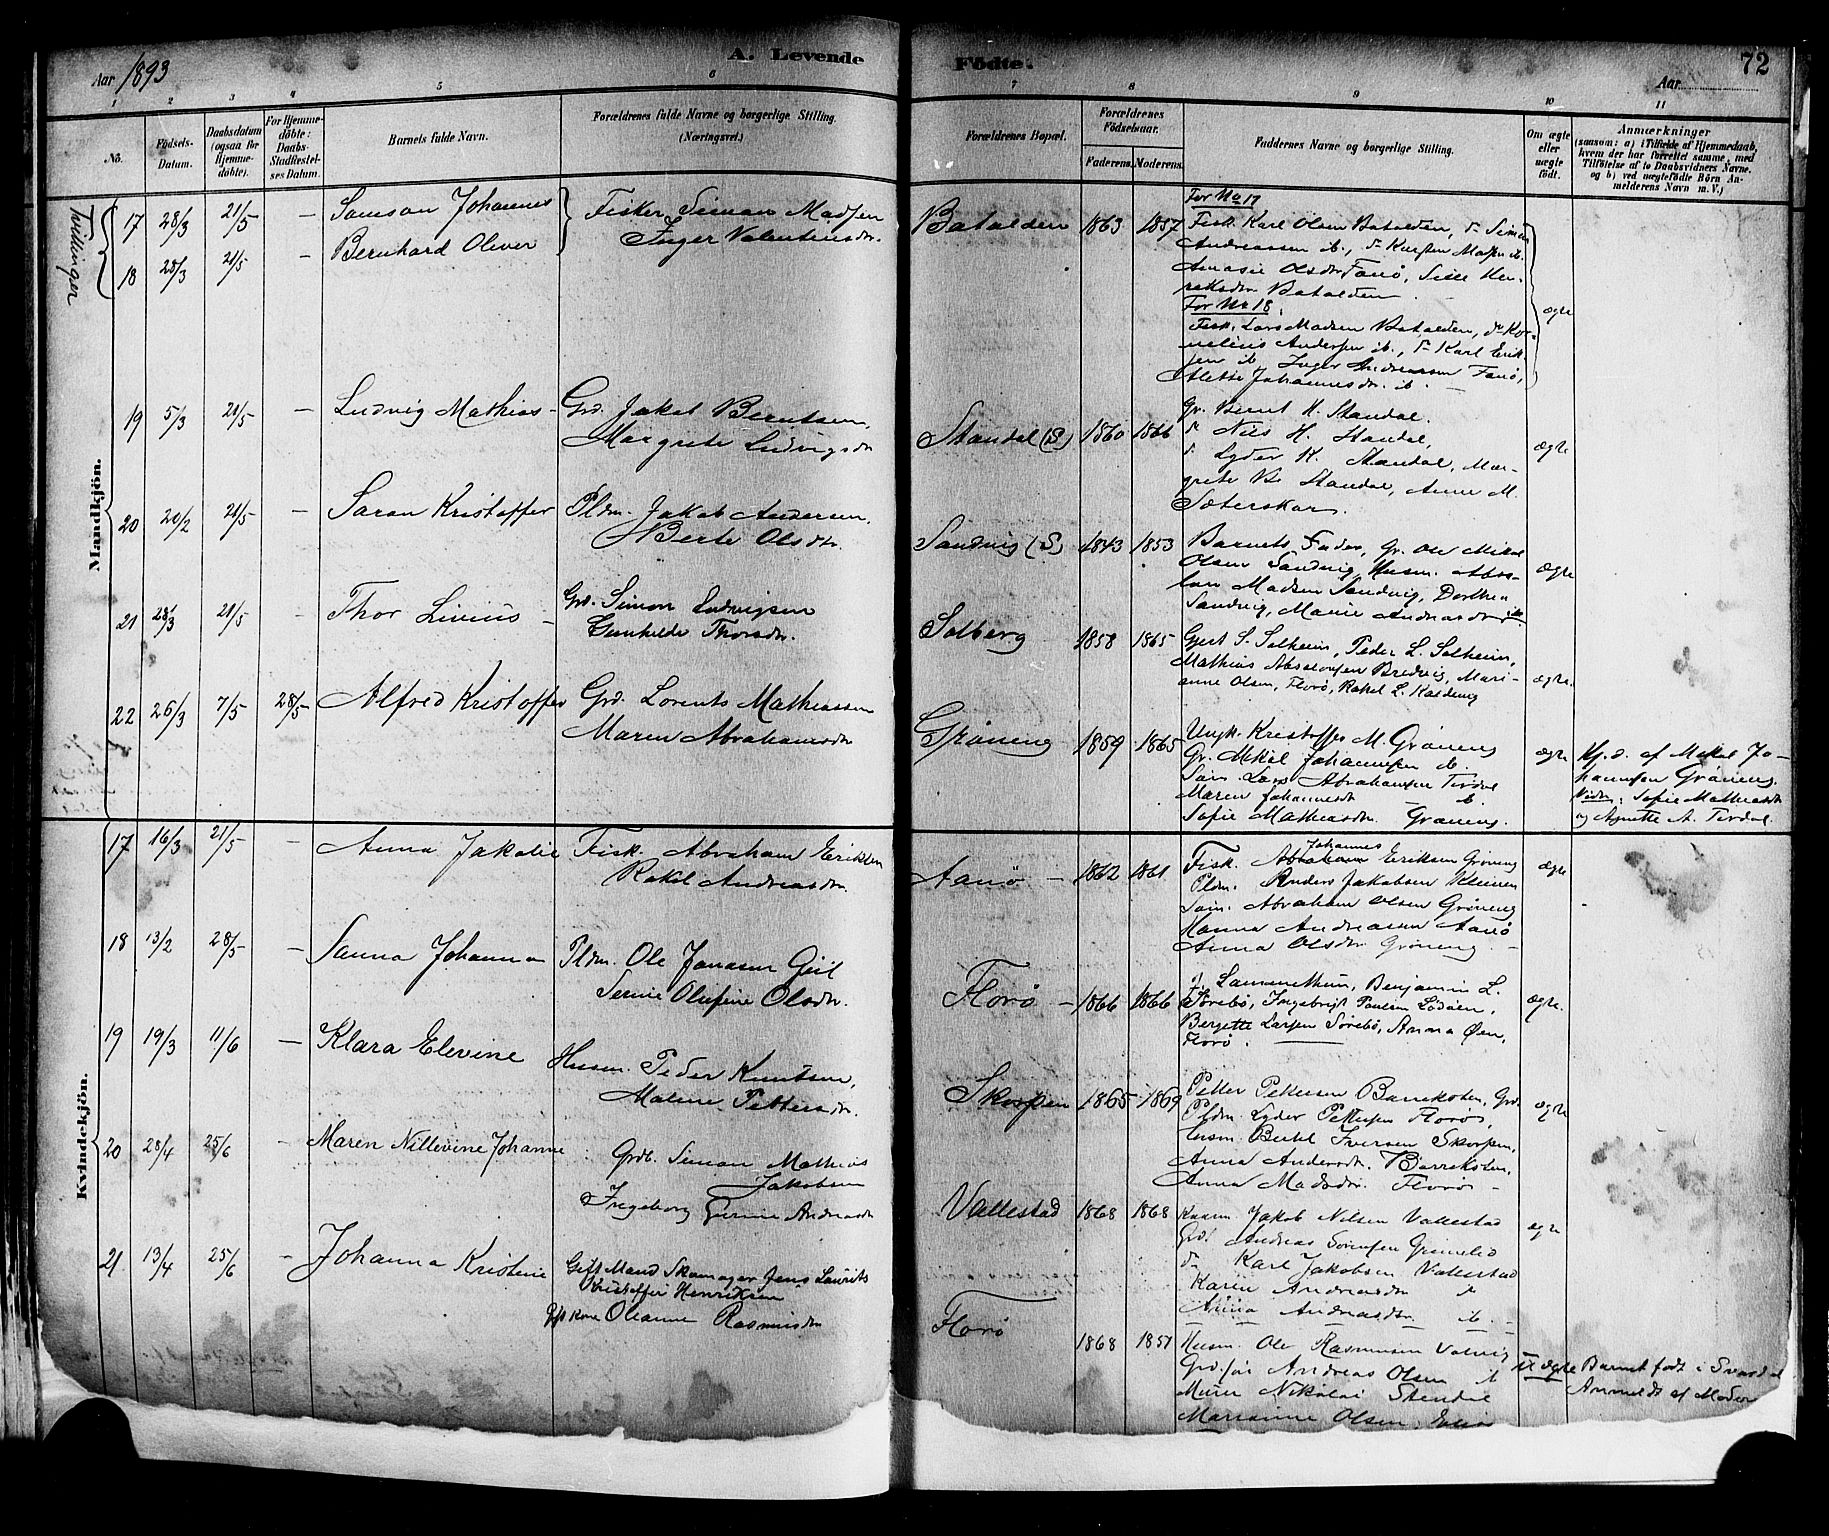 Aar 1893
A. Levende
Födte.
72
Aar
1 2 3 4 5 6 7 8 9 10 11
No.
Födsels-Datum.
Daabsdatum (ogsaa for Hjemme-döbte).
For Hjemme-döbte: Daabs-Stadfæstel-ses Datum.
Barnets fulde Navn.
Forældrenes fulde Navne og borgerlige Stilling. (Næringsvei.)
Forældrenes Bopæl.
Forældrenes Födselsaar.
Faderens. Moderens.
Faddernes Navne og borgerlige Stilling.
Om ægte eller uægte födt.
Anmærkninger
(saasom: a) i Tilfælde af Hjemmedaab,
hvem der har forrettet samme, med
Tilföielse af to Daabsvidners Navne.
og b) ved uægtefödte Börn An-
melderens Navn m. V.)
Tvillinger
Mandkjön.
17 28/3 21/5 - Samson Johannes
18 28/3 21/5 - Bernhard Oliver
Fisker Simon Madsen
Inger Valentinsdr.
Batalden 1863 1857
For No 17
Fisk. Karl Olsen Batalden, do Simon
Andreassen ib., do Karsten Madsen ib.
Amasie Olsdr Fanö, Sille Hen-
riksdr Batalden.
For No 18.
Fisk. Lars Madsen Batalden, do Kor-
nelius Andersen ib., do Karl Erik-
sen ib. Inger Andreassen Fanö,
Alette Johannesdr. ib.
ægte
19 5/3 21/5 - Ludvig Mathias -
Grd. Jakob Berntsen,
Margrete Ludvigsdr
Standal (S) 1860 1866
Gr. Bernt H. Standal.
do Nils H. Standal,
do Lyder K. Standal, Mar-
grete B. Standal, Anne M.
Sæterskar.
ægte
20 20/2 21/5 - Saran Kristoffer
Pldm. Jakob Andersen.
Berte Olsdtr.
Sandvig (S) 1843 1853
Barnets Fader, Gr. Ole Mikal
Olsen Sandvig, Husm. Abra-
ham Madsen Sandvig, Dorthea
Sandvig, Marie Andreasdr ib.
ægte
21 28/3 21/5 - Thor Livius -
Grd. Simon Ludvigsen
Gunhilde Thorsdr.
Solberg 1858 1865
Gjert S. Solheim, Peder L. Solheim,
Mathias Absalonsen Bredvig, Mari-
anne Olsen, Florö, Rakel L. Kaldevig
ægte.
22 26/3 7/5 28/5 Alfred Kristoffer
Grd. Lorents Mathiassen
Maren Abrahamsdtr
Gröning 1859 1865
Ungk. Kristoffer M. Gröning
Gr. Mikal Johannesen ib.
Søn. Lars Abrahamsen Tirdal
Maren Johannesdr ib.
Sofie Mathiasdr. Gröning.
ægte
Hj.d. af Mikal Jo-
hannesen Gröning.
Vidn: Sofie Mathiasdr
og Agnette A. Tirdal.
Kvindekjön.
17 16/3 21/5 - Anna Jakobie
Fisk. Abraham Eriksen
Rakel Andreasdr.
Aanö - 1862 1861
Johannes
Fisk. Abraham Eriksen Gröning
Pldm. Anders Jakobsen Kleiven
Søn. Abraham Olsen Gröning
Hanna Andreassen Aanö
Anna Olsdr Gröning. -
ægte
18 13/2 28/5 - Sanna Johanna
Pldm. Ole Jonasen Geil
Serine Olufine Olsdr.
Florö - 1866 1866
J. Lammethun, Benjamin L.
Sörebö, Ingebrigt Paulsen Lödöen,
Bergette Larsen Sörebö, Anna Öen,
Florö.
ægte.
19 19/3 11/6 - Klara Elevine
Husm. Peder Knutsen,
Maline Pettersdr.
Skorpen 1865 1869
Petter Petersen Barrekoten, Grd.
Pldm. Lyder Pettersen Florö,
Husm. Bertel Iversen Skorpen,
Anna Andersdr. Barreksten,
Anna Madsdr. Florö -
ægte
20 28/4 25/6 - Maren Nillevine Johanne
Grdb. Simon Mathias
Jakobsen
Ingeborg Gurine Andreasdr
Vallestad 1868 1868
Kaarm. Jakob Nilsen Vallestad
Grd. Andreas Sörensen Grimelid
do Karl Jakobsen Vallestad
Karen Andreasdr
Anna Andreasdr. ib. -
ægte
21 13/4 25/6 - Johanna Kristine
Gift Mand Skomager Jens Laurits
Kristoffer Henriksen
Gft Kone Oleanne Rasmusdr
Florö 1868 1851
Husm. Ole Rasmussen Volvig
Grd.för Andreas Olsen ib
Murer Nikolai Stendal
Marianne Olsen,
Uægte
Barnet födt i Svardal
Anmeldt af Moderen